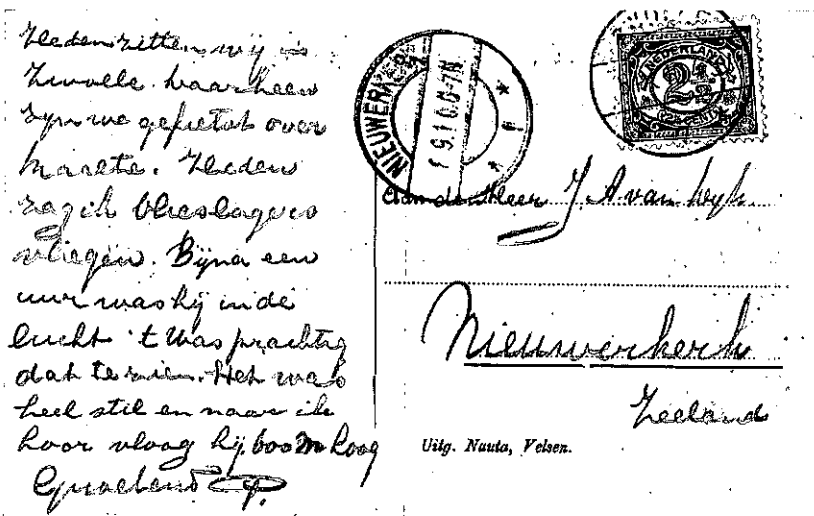 Heden zitten wij in
Zwolle waarheen
zijn we gefietst over
Raalte. Heden
zag ik Wieslagers
vliegen. Bijna een
uur was hij in de
lucht 't Was prachtig
dat te zien. Het was
heel stil en naar ik
hoor vloog hij 600 m hoog
Groetend
NIEUWERKERK
1 9.10.6-7N
NEDERLAND
2½
CENT
Aan de Heer J. A van Wyk
Nieuwerkerk
Zeeland
Uitg. Nauta, Velsen.